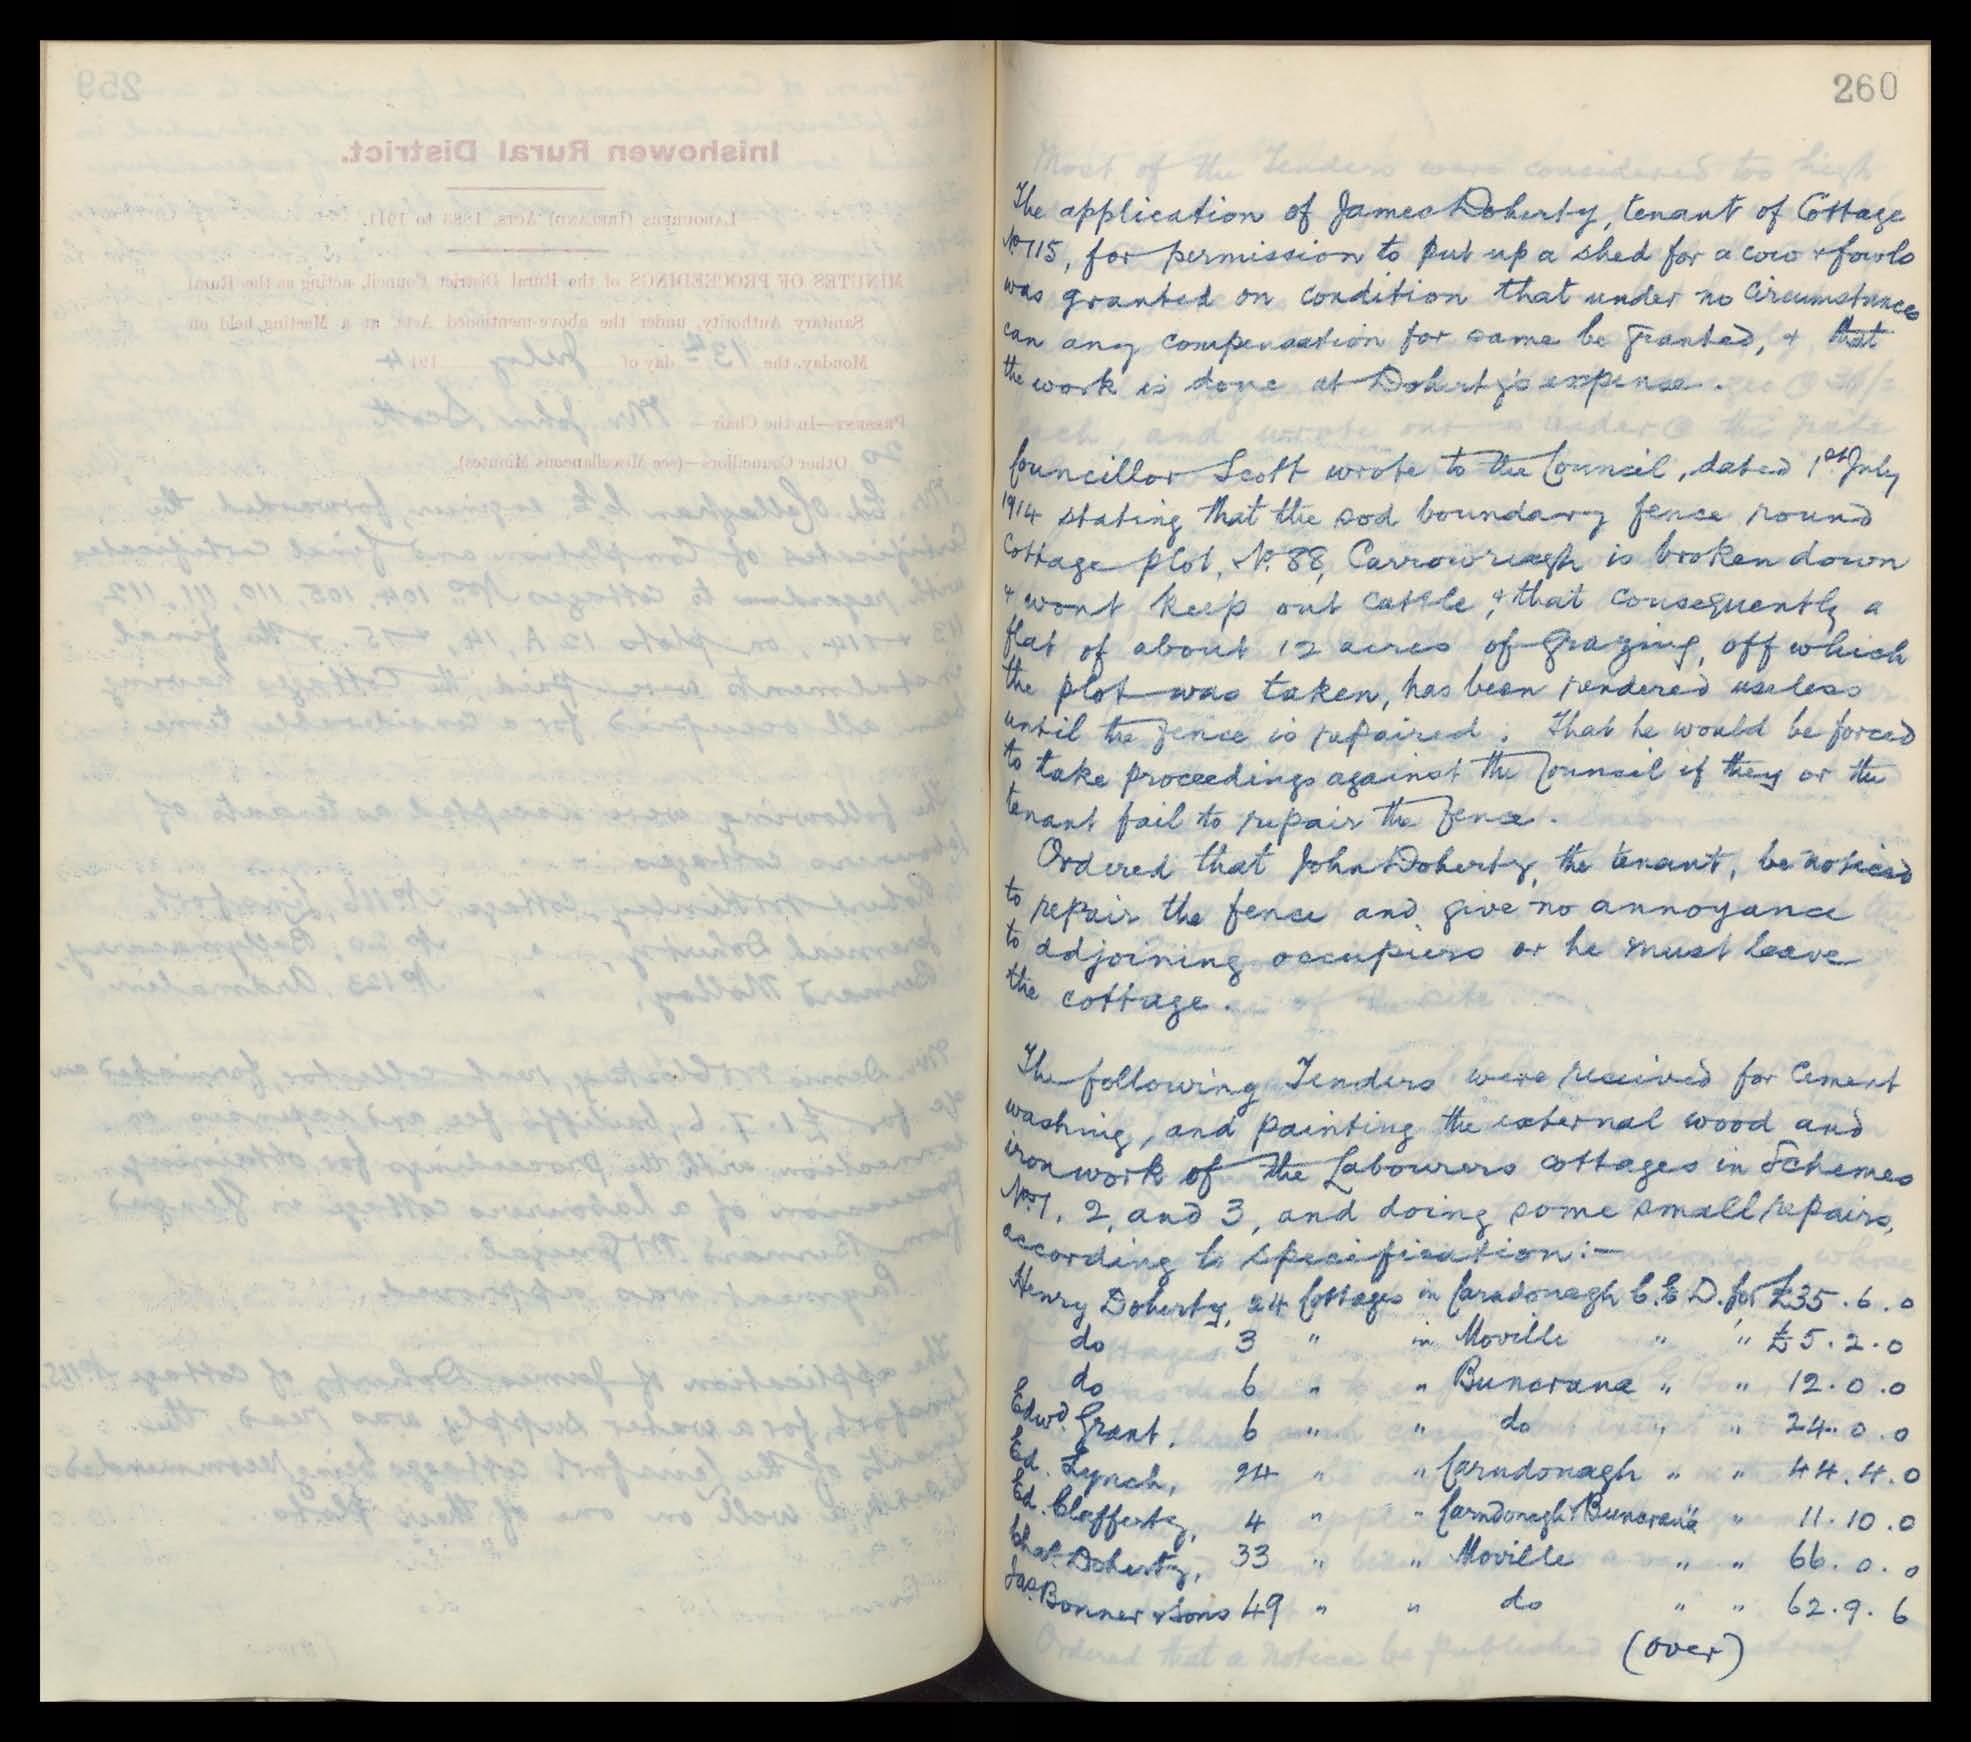 260
The application of James Doherty, tenant of Cottage
No. 115, for permission to put up a shed for a cow & fowls
was granted on condition that under no circumstances
can any compensation for same be granted, & that
the work is done at Doherty's expense.
Councillor Scott wrote to the Council, dated 1st July
1914 stating that the sod boundary fence round
Cottage plot, No. 88, Carrowreagh is broken down
& wont keep out cattle, & that consequently a
flat of about 12 acres of grazing, off which
the plot was taken, has been rendered useless
until the fence is repaired. That he would be forced
to take proceedings against the Council if they or the
tenant fail to repair the fence.
Ordered that John Doherty, the tenant, be noticed
to repair the fence and give no annoyance
to adjoining occupiers or he must leave
the cottage.
The following Tenders were received for cement
washing, and painting the external wood and
iron work of the Labourers cottages in Schemes
Nos. 1, 2, and 3, and doing some small repairs,
according to specification:-
Henry Doherty, 24 Cottages in Carndonagh C.E.D. for £35.6.0
do 3 " in Moville " " £5.2.0
do 6 " " Buncrana " " 12.0.0
Edwd. Grant, 6 " " do " " 24.0.0
Ed. Lynch, 24 " " Carndonagh " " 44.4.0
Ed. Clafferty, 4 " " Carndonagh & Buncrana " " 11.10.0
Chas. Doherty, 33 " " Moville " " 66.0.0
Jas. Bonner & Sons 49 " " do " " 62.9.6
(over)